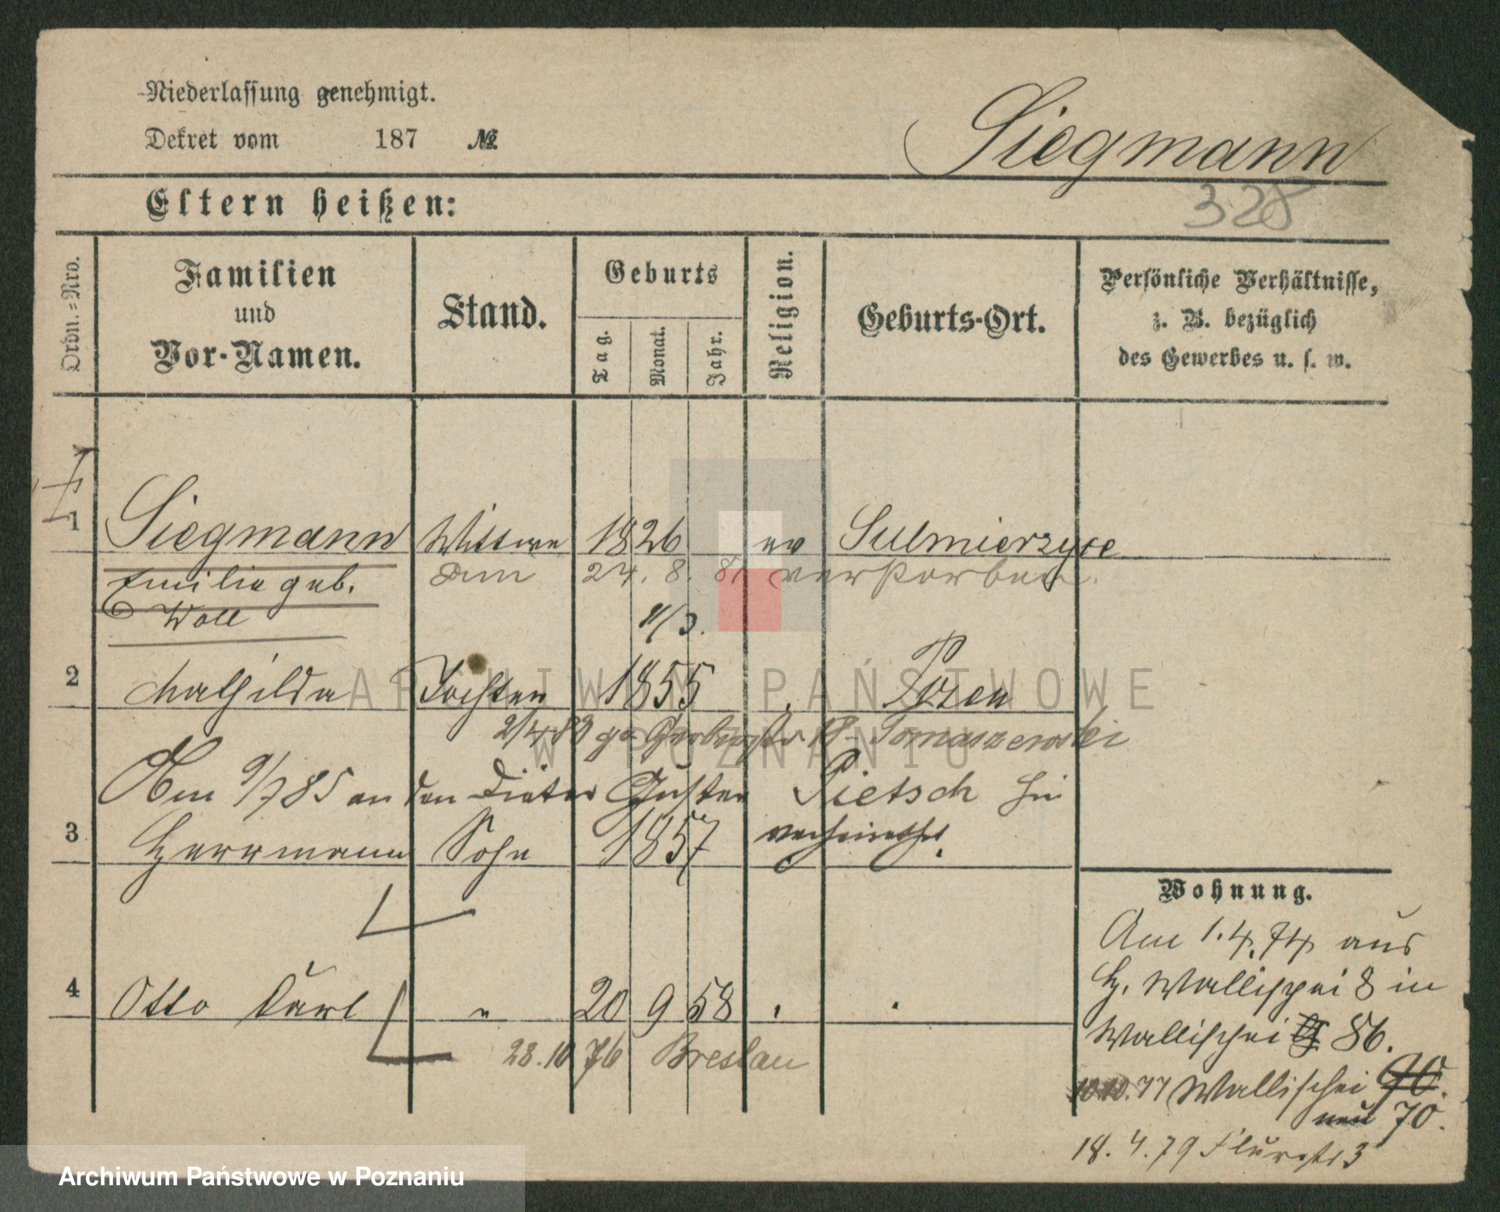 Niederlassung genehmigt.
Dekret vom 187 №
Siegmann
328
Eltern heißen:
Ordn.=Nro.
Familien
und
Vor-Namen.
Stand.
Geburts
Tag.
Monat.
Jahr.
Religion.
Geburts-Ort.
Persönliche Verhältnisse,
z. B. bezüglich
des Gewerbes u. s. w.
1 Siegmann Wittwe 1826 ev Sulmierzyce
Emilie geb. am 24. 8. 81 verstorben.
Woll
11/3.
2 Mathilde Tochter 1855 Posen
2/4 83 Tomaszewski
Am 9/7 85 an den Gustav Pietsch hier
verheirathet.
3 Herrmann Sohn 1857
4 Otto Carl " 20 9 58
28.10 76 Breslau
Wohnung.
Am 1.4.74 aus
H. Wallischei 8 in
Wallischei 86.
10.10.77 Wallischei 90.
neu 70.
18.4.79 Flurstr 3
ARCHIWUM PAŃSTWOWE
W POZNANIU
Archiwum Państwowe w Poznaniu